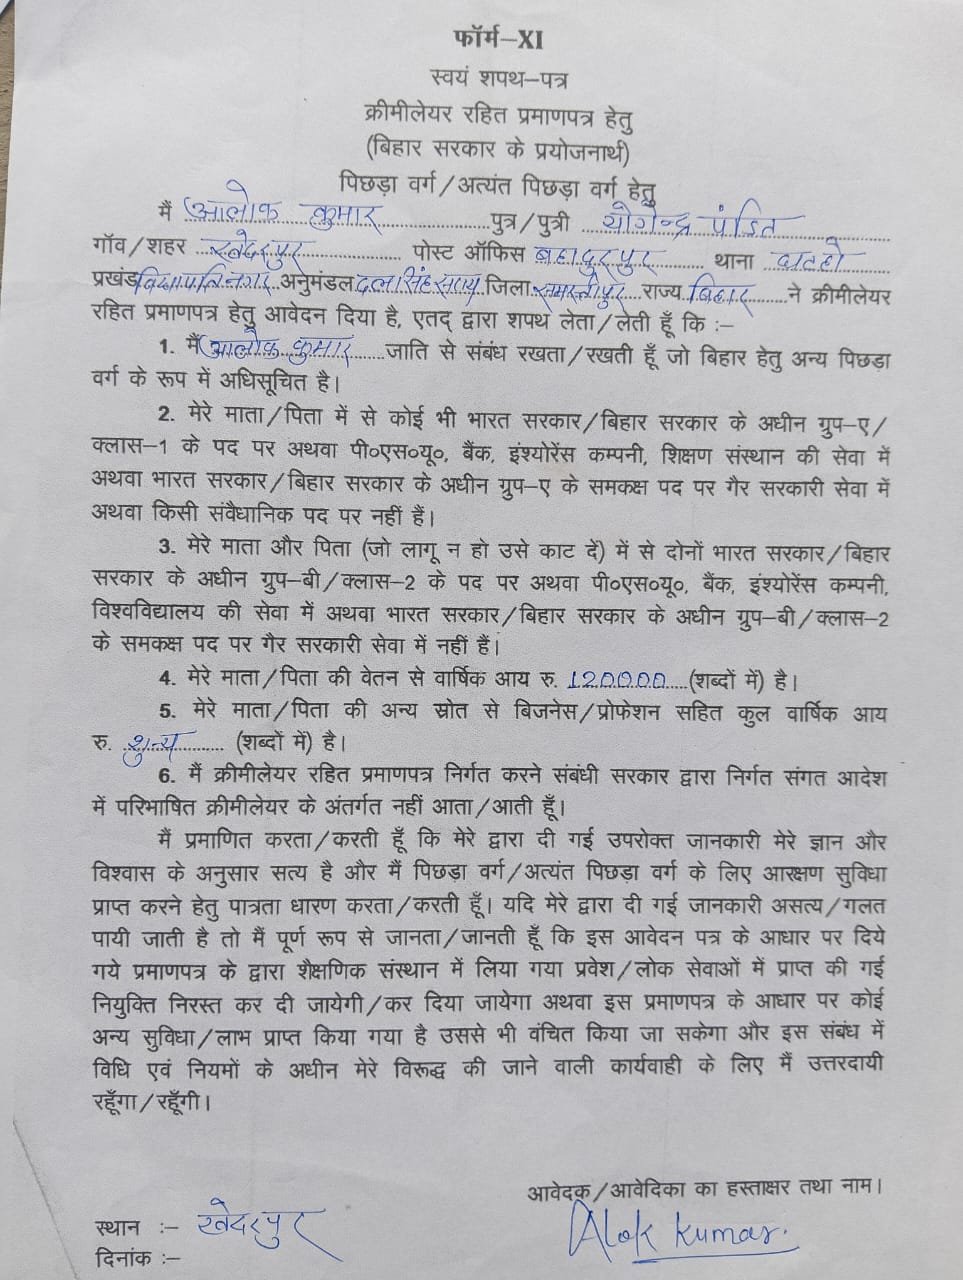 फॉर्म–XI
स्वयं शपथ–पत्र
क्रीमीलेयर रहित प्रमाणपत्र हेतु
(बिहार सरकार के प्रयोजनार्थ)
पिछड़ा वर्ग/अत्यंत पिछड़ा वर्ग हेतु
मैं आलोक कुमार पुत्र/पुत्री योगेन्द्र पंडित
गाँव/शहर खेदरपुर पोस्ट ऑफिस बहादुरपुर थाना घटहो
प्रखंड विद्यापतिनगर अनुमंडल दलसिंहसराय जिला समस्तीपुर राज्य बिहार ने क्रीमीलेयर
रहित प्रमाणपत्र हेतु आवेदन दिया है, एतद् द्वारा शपथ लेता/लेती हूँ कि :–
1. मैं आलोक कुमार जाति से संबंध रखता/रखती हूँ जो बिहार हेतु अन्य पिछड़ा
वर्ग के रूप में अधिसूचित है।
2. मेरे माता/पिता में से कोई भी भारत सरकार/बिहार सरकार के अधीन ग्रुप–ए/
क्लास–1 के पद पर अथवा पी०एस०यू०, बैंक, इंश्योरेंस कम्पनी, शिक्षण संस्थान की सेवा में
अथवा भारत सरकार/बिहार सरकार के अधीन ग्रुप–ए के समकक्ष पद पर गैर सरकारी सेवा में
अथवा किसी संवैधानिक पद पर नहीं हैं।
3. मेरे माता और पिता (जो लागू न हो उसे काट दें) में से दोनों भारत सरकार/बिहार
सरकार के अधीन ग्रुप–बी/क्लास–2 के पद पर अथवा पी०एस०यू०, बैंक, इंश्योरेंस कम्पनी,
विश्वविद्यालय की सेवा में अथवा भारत सरकार/बिहार सरकार के अधीन ग्रुप–बी/क्लास–2
के समकक्ष पद पर गैर सरकारी सेवा में नहीं हैं।
4. मेरे माता/पिता की वेतन से वार्षिक आय रु. 120000 (शब्दों में) है।
5. मेरे माता/पिता की अन्य स्रोत से बिजनेस/प्रोफेशन सहित कुल वार्षिक आय
रु. शुन्य (शब्दों में) है।
6. मैं क्रीमीलेयर रहित प्रमाणपत्र निर्गत करने संबंधी सरकार द्वारा निर्गत संगत आदेश
में परिभाषित क्रीमीलेयर के अंतर्गत नहीं आता/आती हूँ।
मैं प्रमाणित करता/करती हूँ कि मेरे द्वारा दी गई उपरोक्त जानकारी मेरे ज्ञान और
विश्वास के अनुसार सत्य है और मैं पिछड़ा वर्ग/अत्यंत पिछड़ा वर्ग के लिए आरक्षण सुविधा
प्राप्त करने हेतु पात्रता धारण करता/करती हूँ। यदि मेरे द्वारा दी गई जानकारी असत्य/गलत
पायी जाती है तो मैं पूर्ण रूप से जानता/जानती हूँ कि इस आवेदन पत्र के आधार पर दिये
गये प्रमाणपत्र के द्वारा शैक्षणिक संस्थान में लिया गया प्रवेश/लोक सेवाओं में प्राप्त की गई
नियुक्ति निरस्त कर दी जायेगी/कर दिया जायेगा अथवा इस प्रमाणपत्र के आधार पर कोई
अन्य सुविधा/लाभ प्राप्त किया गया है उससे भी वंचित किया जा सकेगा और इस संबंध में
विधि एवं नियमों के अधीन मेरे विरूद्ध की जाने वाली कार्यवाही के लिए मैं उत्तरदायी
रहूँगा/रहूँगी।
आवेदक/आवेदिका का हस्ताक्षर तथा नाम।
स्थान :– खेदरपुर Alok Kumar.
दिनांक :–